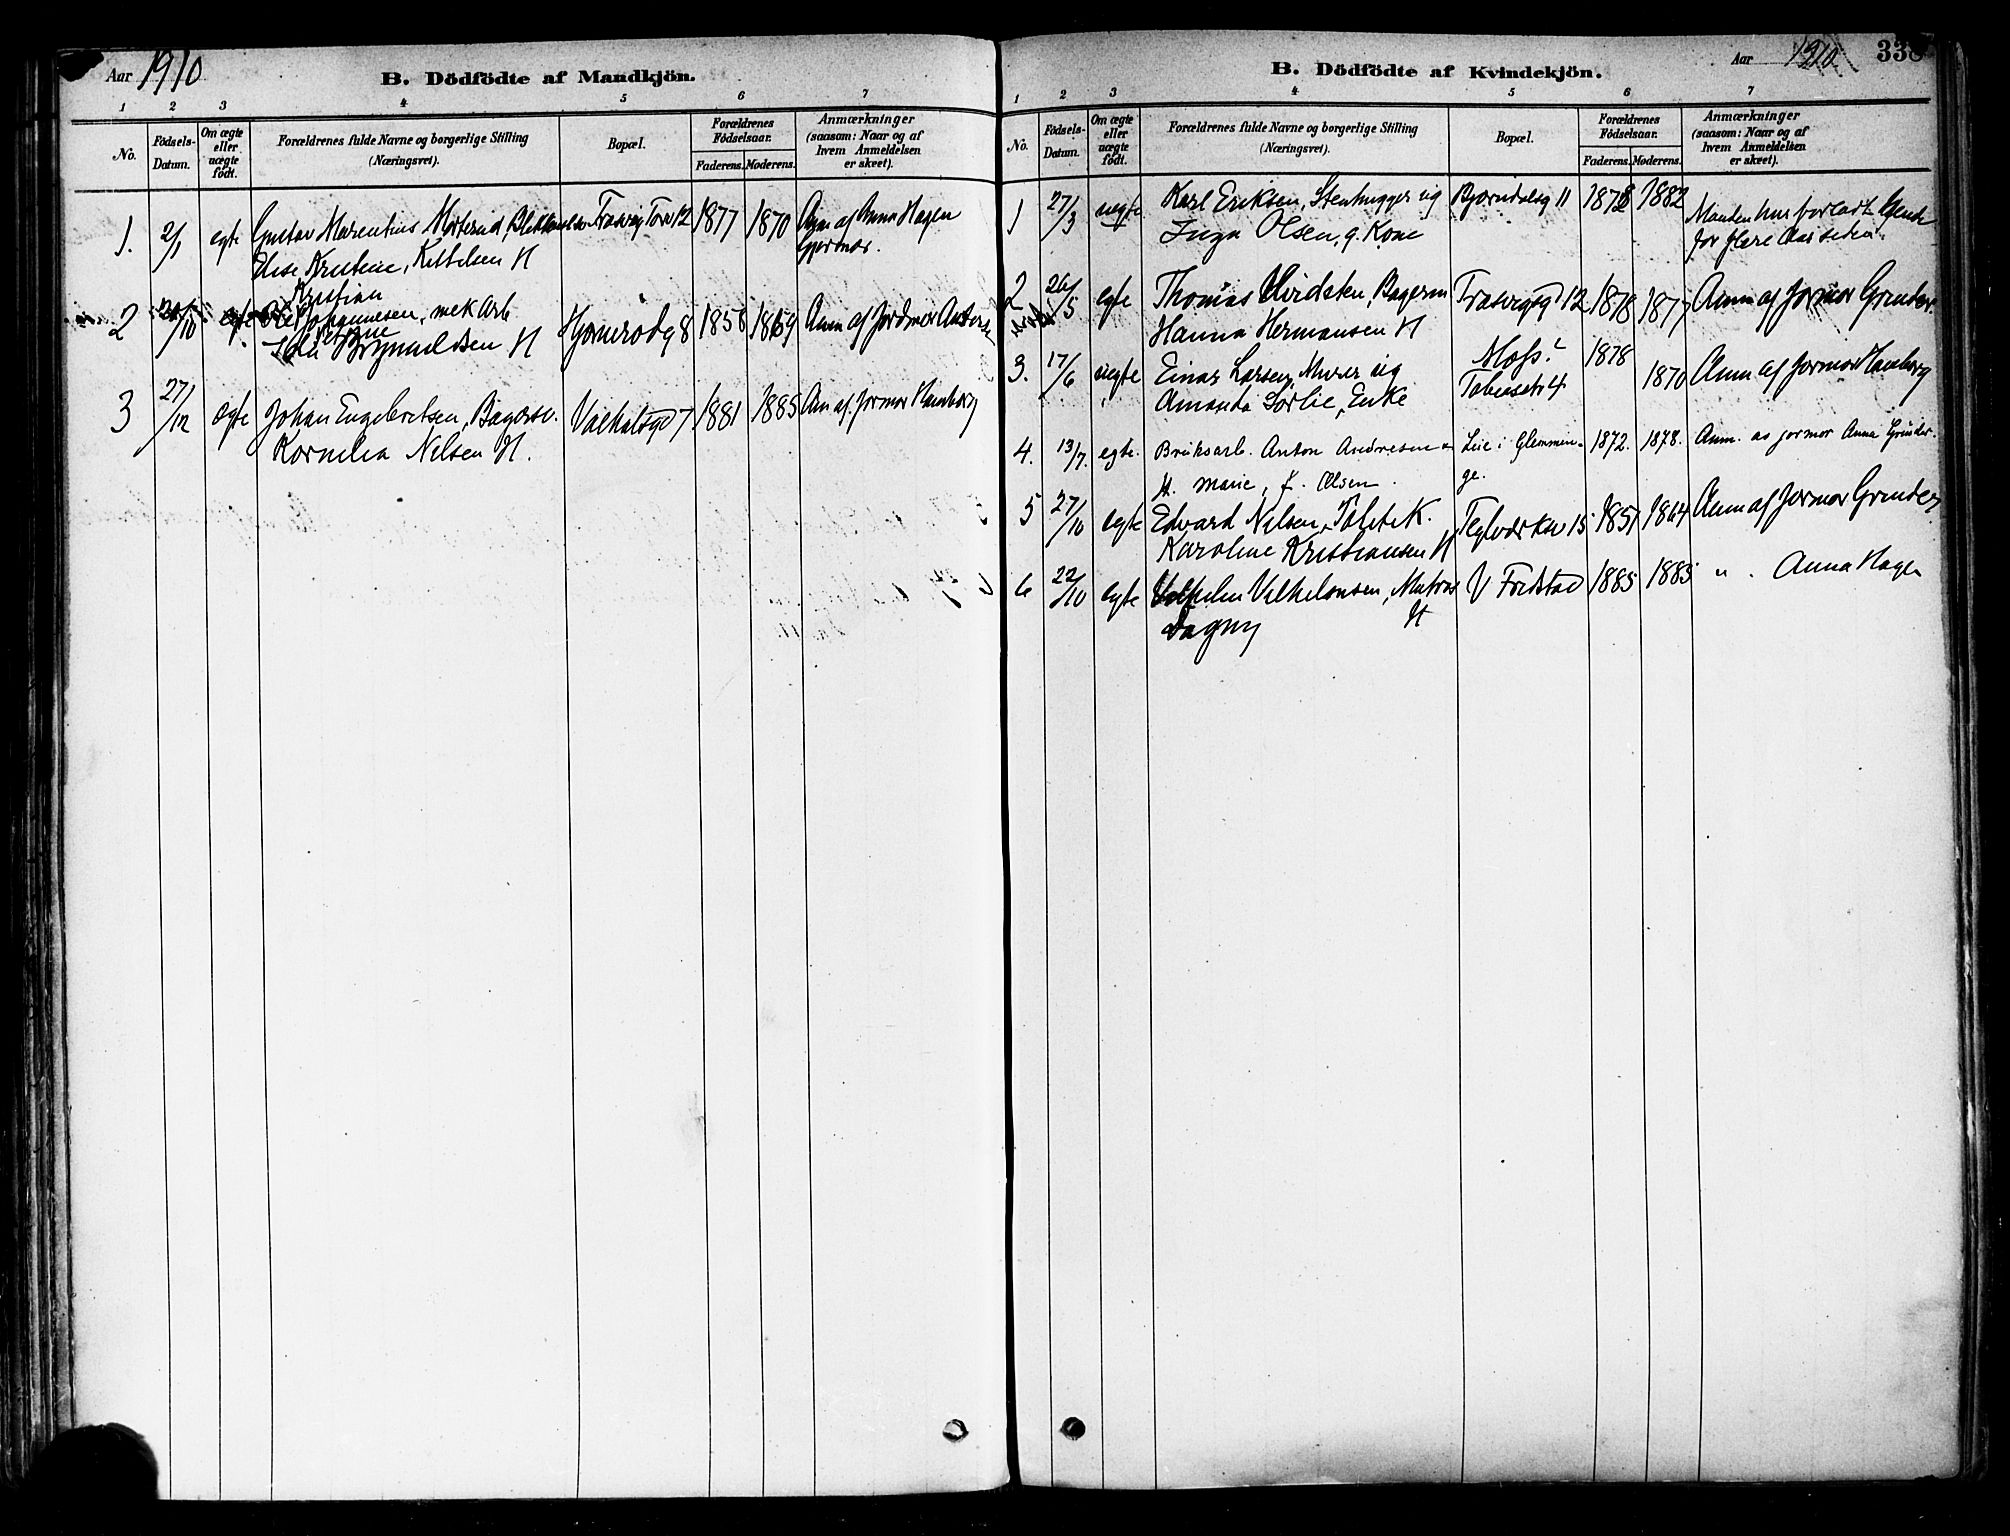 Aar 1910
B. Dödfödte af Mandkjön.
1 2 3 4 5 6 7
No.
Födsels-Datum.
Om ægte eller uægte födt.
Forældrenes fulde Navne og borgerlige Stilling
(Næringsvei).
Bopæl.
Forældrenes Födselsaar.
Faderens. Moderens.
Anmærkninger
(saasom: Naar og af
hvem Anmeldelsen
er skeet).
1. 2/1 egte Gustav Marentius 1877 1870 Anm af Anna Hagen
Elise Kristine, Kittelsen H gjormor.
Kristian
2 /10 Johannesen, mek Arb Hjornerodg 8 1858 1869 Anm af Jordmor
Brynildsen H
3 27/12 egte Johan Engebretsen, Bagersv. Valhalsgd 7 1881 1885 Anm af. Jormor Hamborg
Kornelia Nelsen H.
B. Dödfödte af Kvindekjön.
Aar 1910
338
1 2 3 4 5 6 7
No.
Födsels-Datum.
Om ægte eller uægte födt.
Forældrenes fulde Navne og borgerlige Stilling
(Næringsvei).
Bopæl.
Forældrenes Födselsaar.
Faderens. Moderens.
Anmærkninger
(saasom: Naar og af
hvem Anmeldelsen
er skeet).
1 27/3 uegte Karl Eriksen, Stenhugger og Bjorndalsg 11 1878 1882 Manden har forladt
Inga Olsen, g. Kone for flere Aar siden.
2 26/5 egte Thomas Hvidsten, Bagerm Trasvigsgd 12 1878 1877 Anm af Jormor Grinder.
Hanna Hermansen H
3. 17/6 uegte Einar Larsen, Murer og Moss? 1878 1870 Anm af Jormor Hamborg
Amanda Sorlie, Enke 4
4. 13/7. egte. Bruksarb. Anton Andresen Lie i Glemmin- 1872. 1878. Anm. as jormor Anna Grinder.
H. Marie, f. Olsen. ge.
5 27/10 egte Edvard Nilsen, K. 15 1857 1864 Anm af Jormor Grinder
Karoline Kristiansen H
6 22/10 egte Vilhelmsen, Matros V Fredstad 1885 1885 " . Anna Hagen
Dagny H